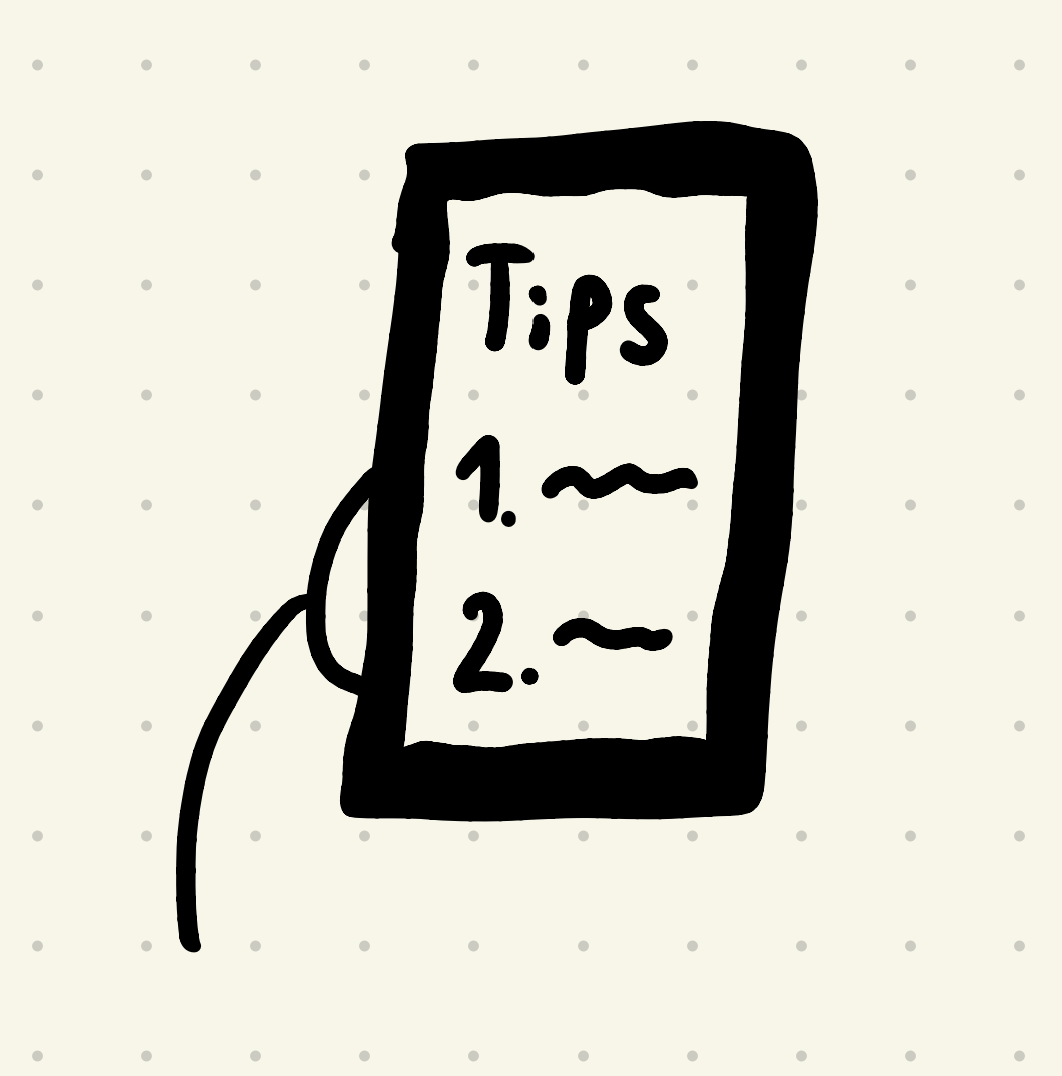 Tips
1.
2.